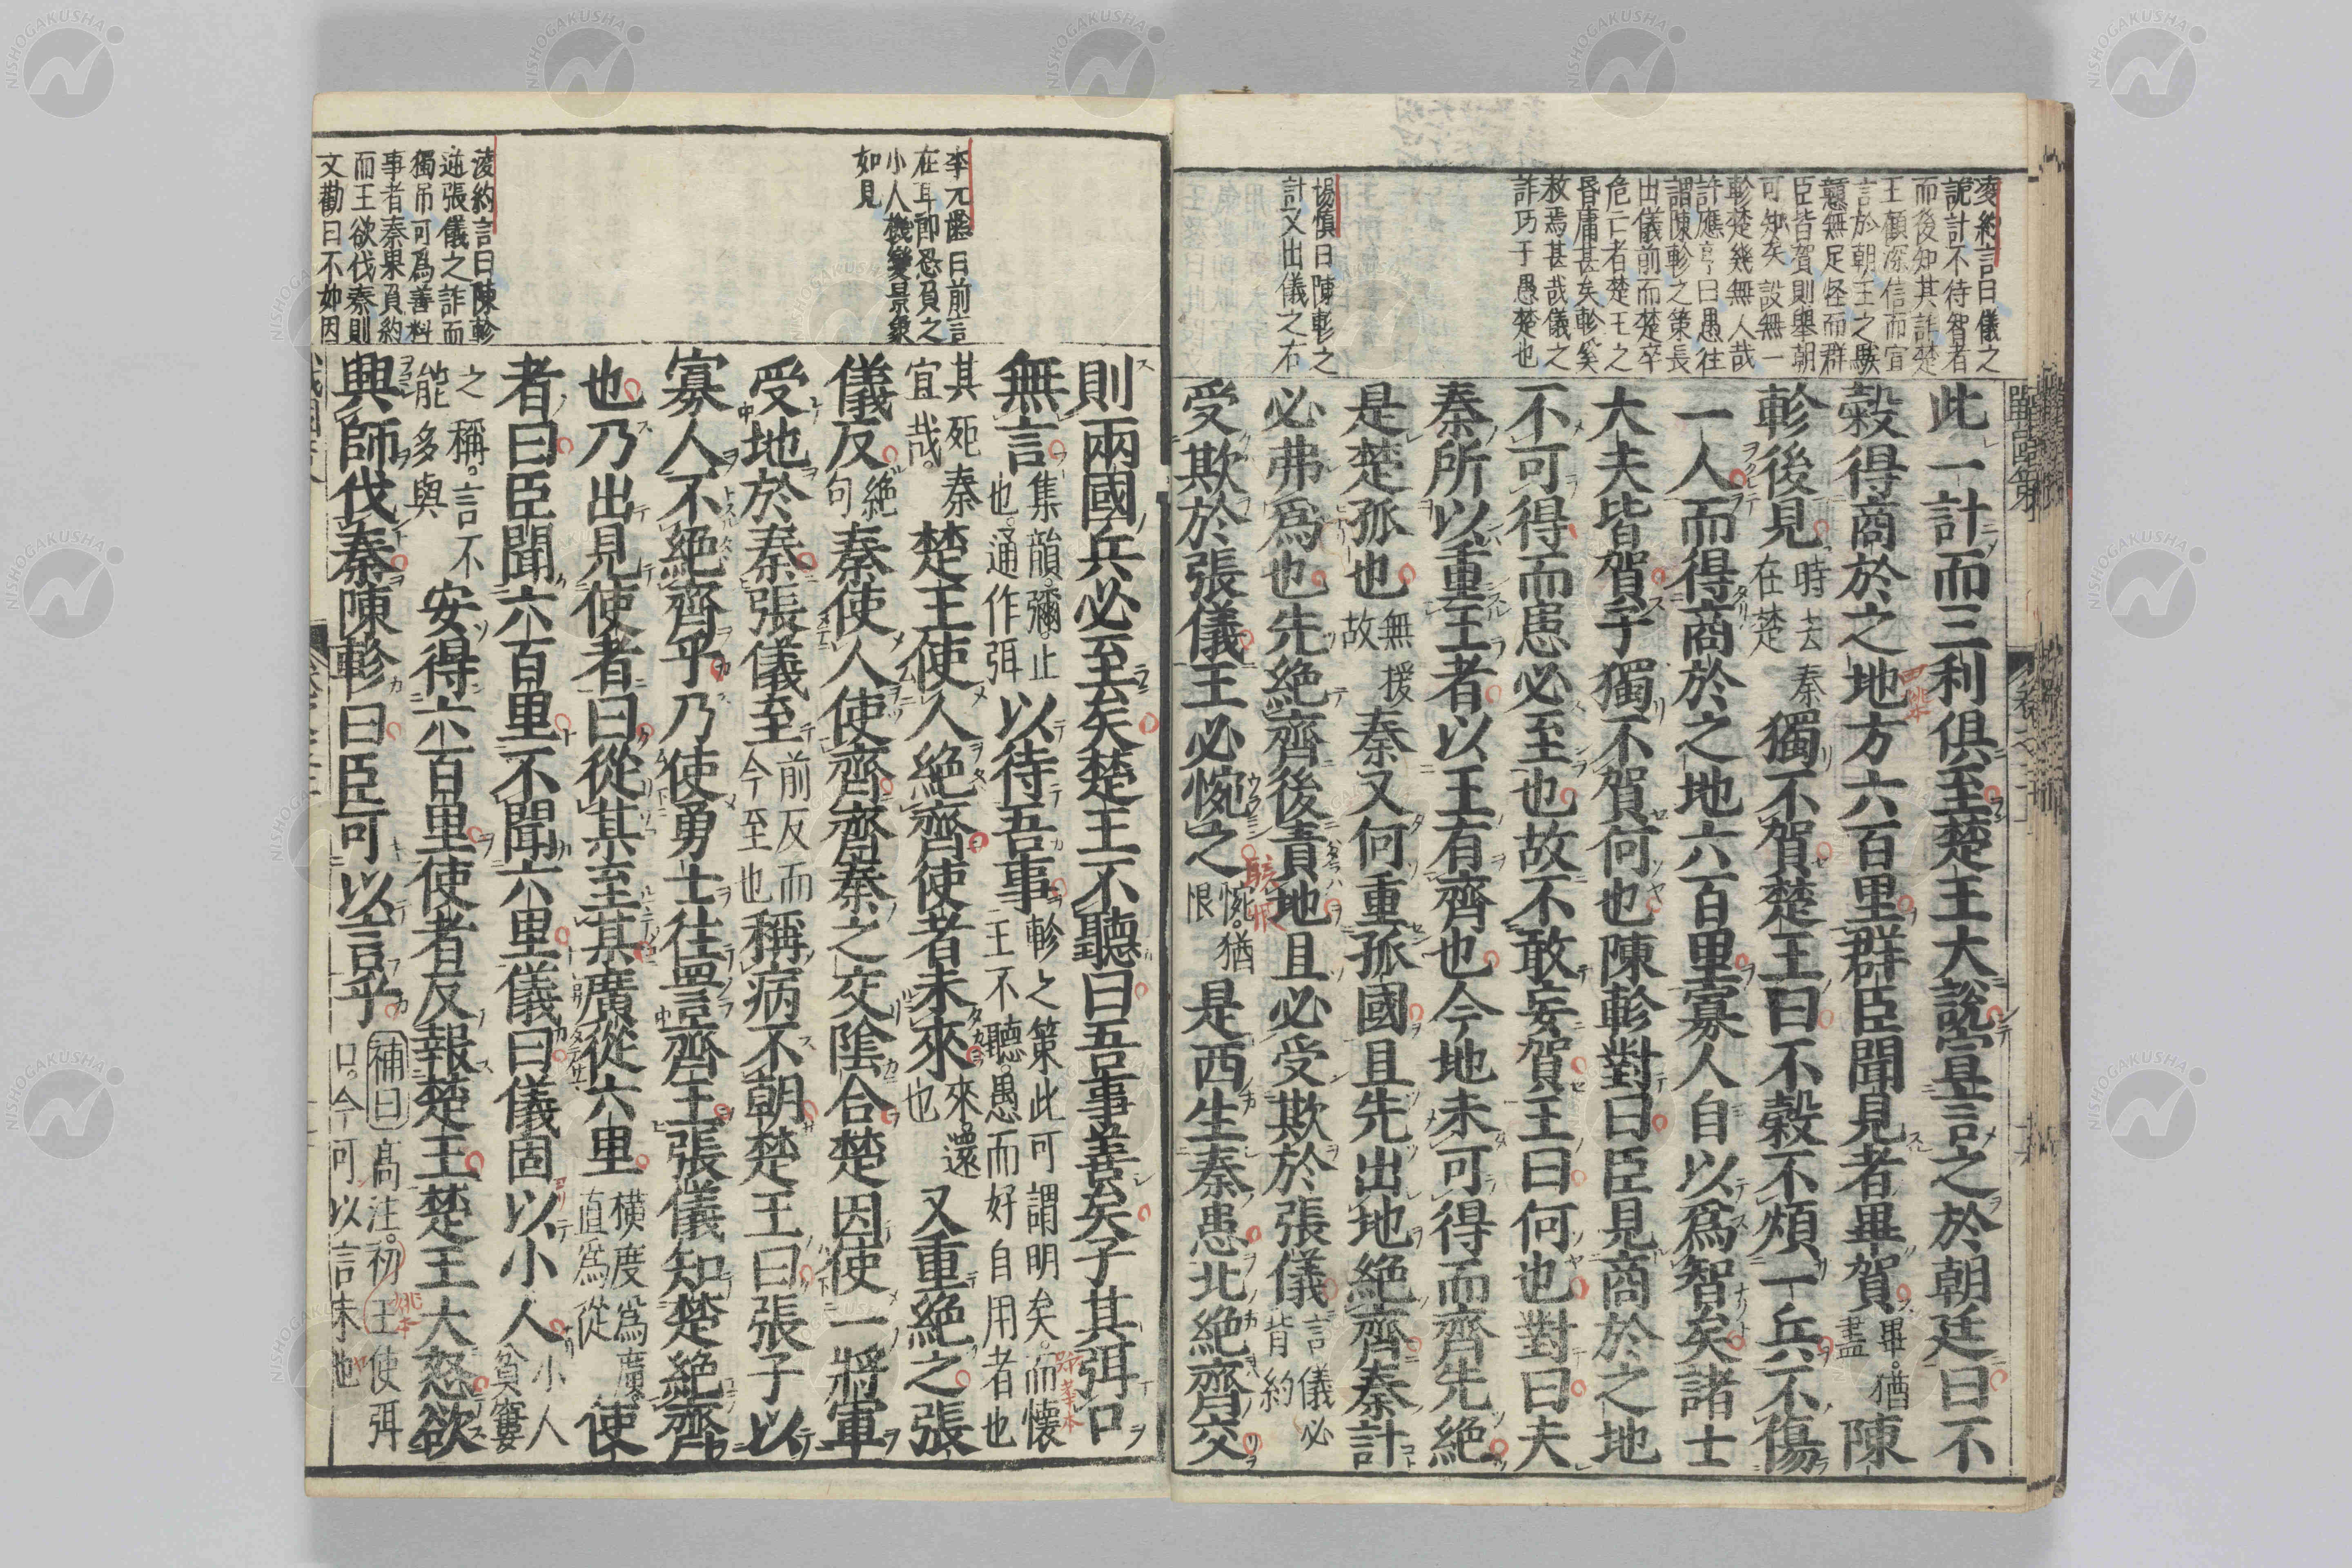 凌約言曰儀之
詭計不待智者
而後知其詐楚
王顧深信而宣
言於朝王之騃
戇無足怪而群
臣皆賀則舉朝
可知矣設無一
軫楚幾無人哉
許應亨曰愚往
謂陳軫之策長
出儀前而楚卒
危亡者楚王之
昏庸甚矣軫奚
救焉甚哉儀之
詐巧于愚楚也
楊慎曰陳軫之
計又出儀之右
此一計而三利俱至楚王大說宣言之於朝廷曰不
穀得商於之地方六百里群臣聞見者畢賀畢猶盡陳
軫後見時去秦在楚獨不賀楚王曰不穀不煩一兵不傷
一人而得商於之地六百里寡人自以爲智矣諸士
大夫皆賀子獨不賀何也陳軫對曰臣見商於之地
不可得而患必至也故不敢妄賀王曰何也對曰夫
秦所以重王者以王有齊也今地未可得而齊先絕
是楚孤也無援故秦又何重孤國且先出地絕齊秦計
必弗爲也先絕齊後責地且必受欺於張儀言儀必背約
受欺於張儀王必惋之惋猶恨是西生秦患北絕齊交
李元齡曰前言
在耳即恐負之
小人機變景象
如見
凌約言曰陳軫
逆張儀之詐而
獨吊可爲善料
事者秦果負約
而王欲伐秦則
文勸曰不如因
則兩國兵必至矣楚王不聽曰吾事善矣子其弭口
無言集韻彌止也通作弭以待吾事軫之策此可謂明矣而懷王不聽愚而好自用者也
其死宜哉秦楚王使人絕齊使者未來來還也又重絕之張
儀反絕句秦使人使齊齊秦之交陰合楚因使一將軍
受地於秦張儀至前反而今至也稱病不朝楚王曰張子以
寡人不絕齊乎乃使勇士往詈齊王張儀知楚絕齊
也乃出見使者曰從某至某廣從六里橫度爲廣直爲從使
者曰臣聞六百里不聞六里儀曰儀固以小人小人貧窶
之稱言不能多與安得六百里使者反報楚王楚王大怒欲
興師伐秦陳軫曰臣可以言乎補曰高注初王使弭口今可以言未也